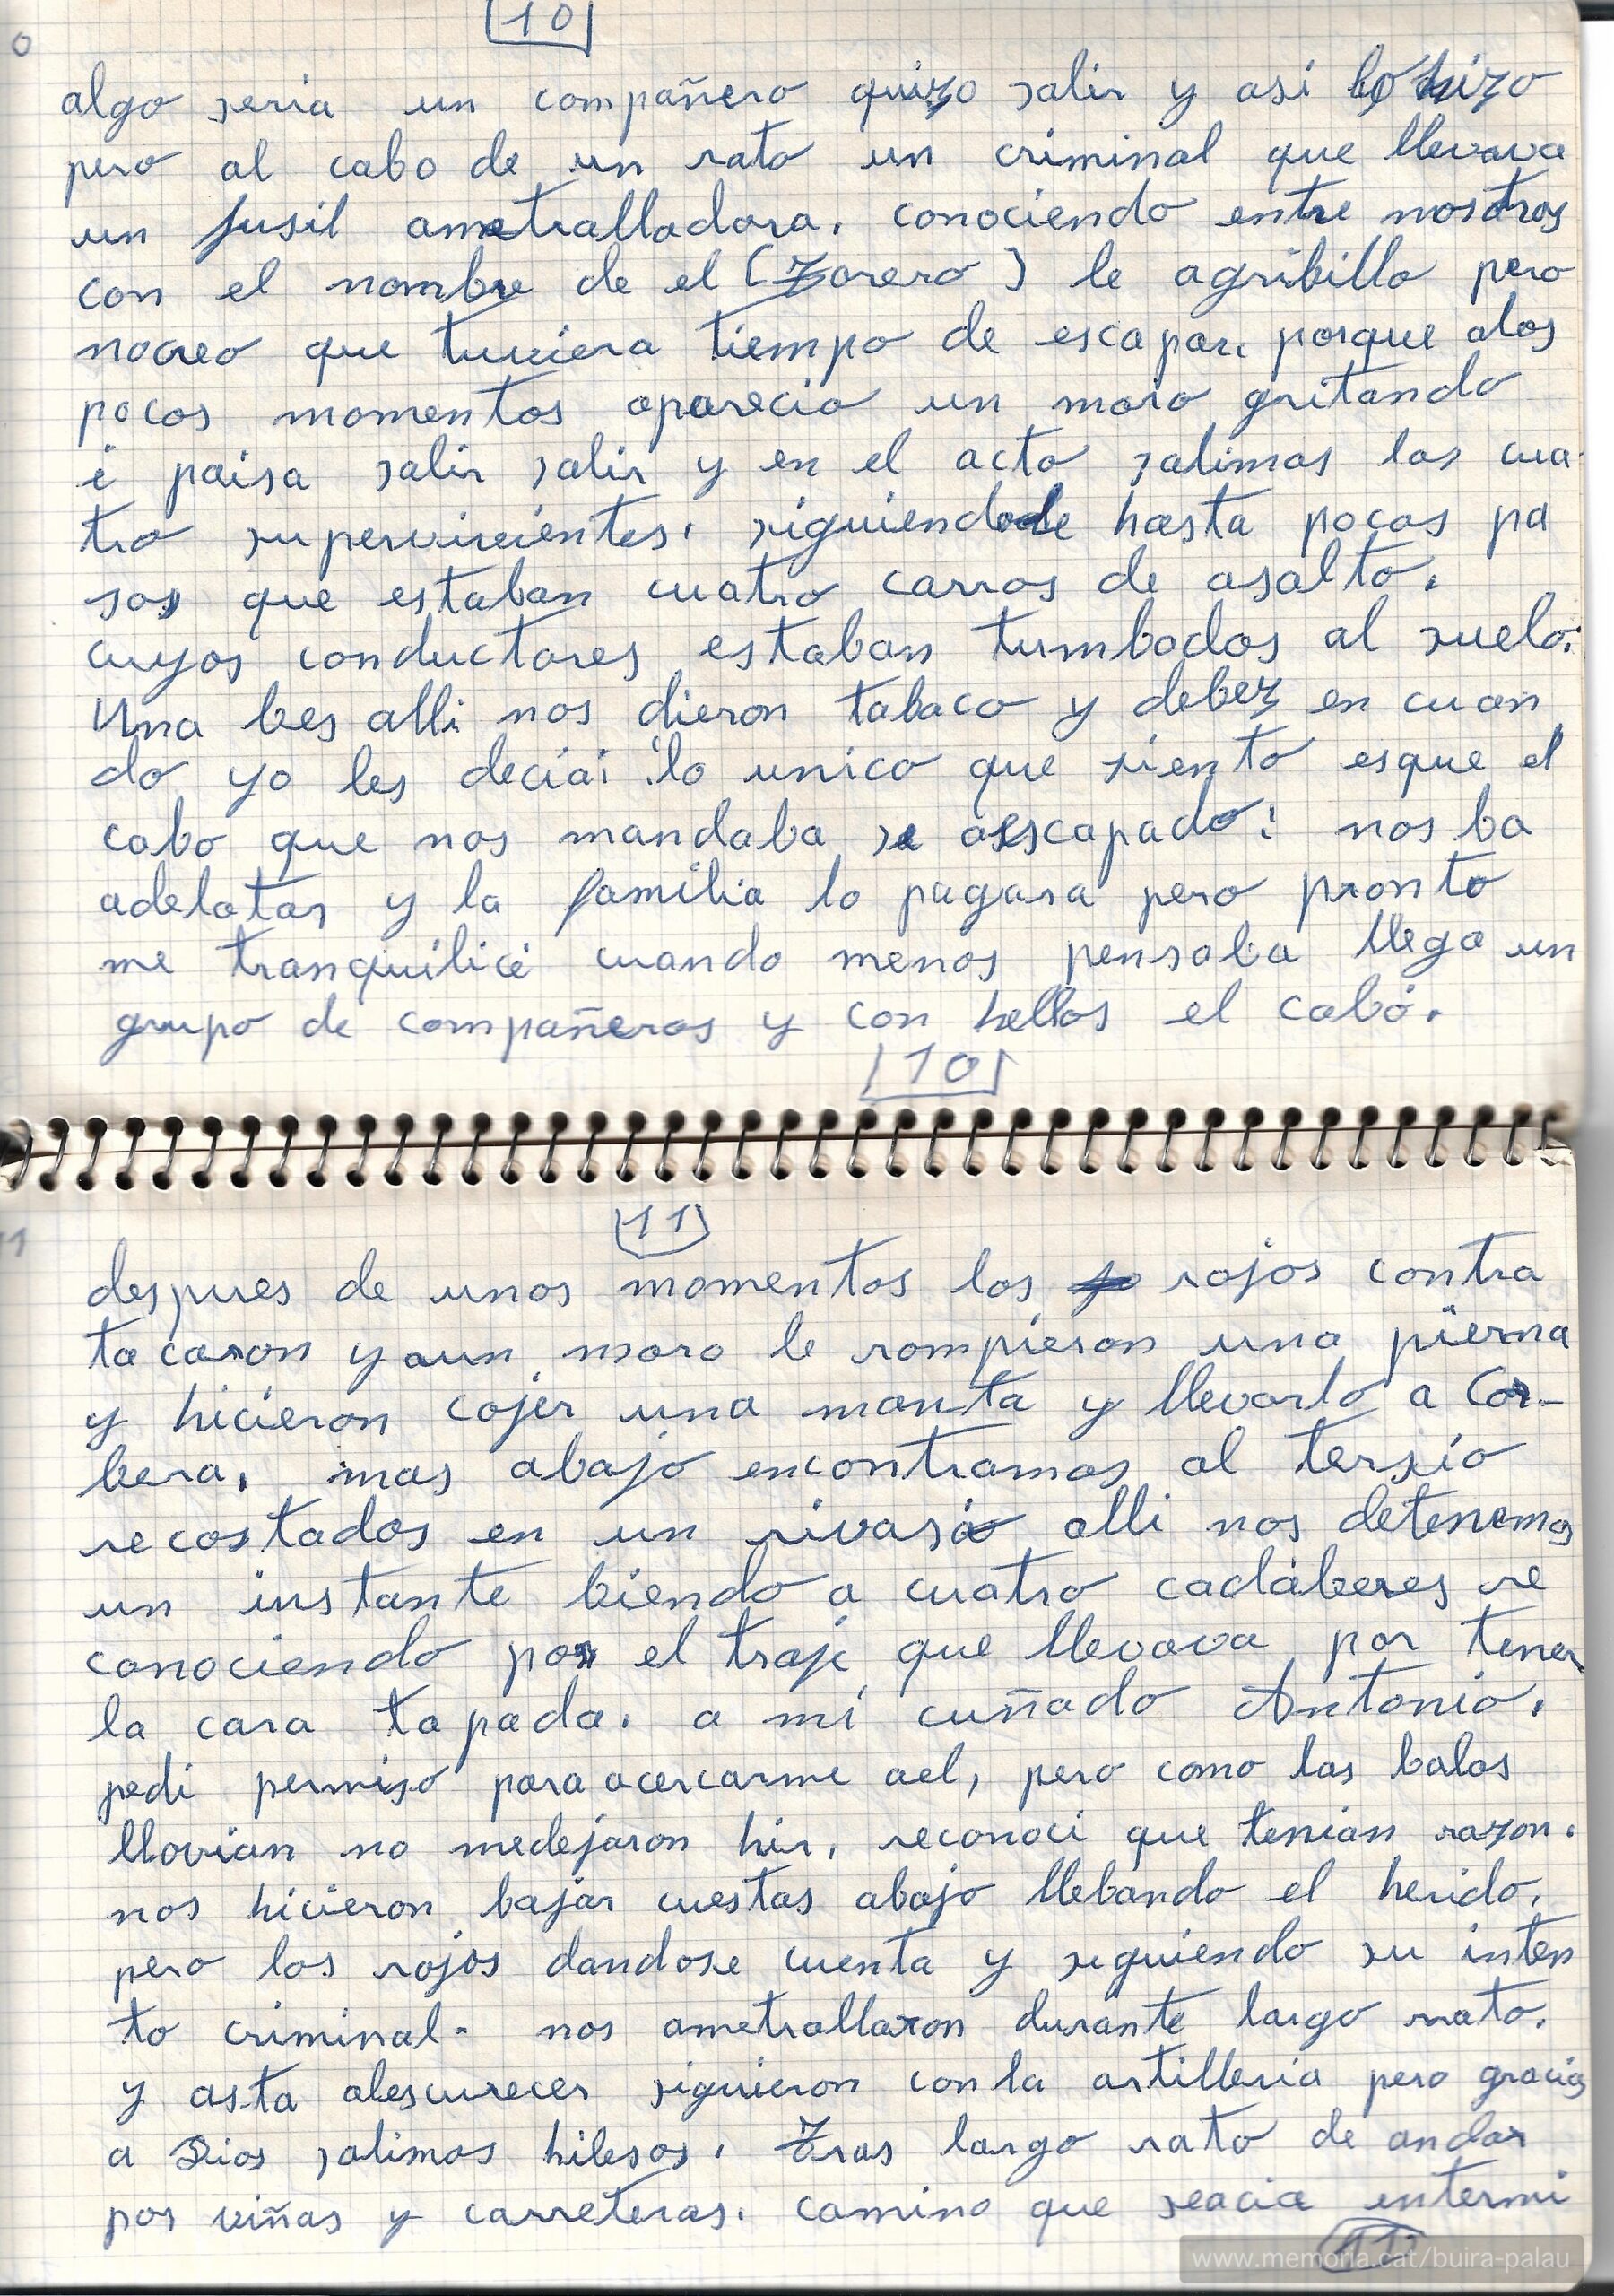 10
0
algo seria un compañero quizo salir y así lo hizo
pero al cabo de un rato un criminal que llevava
un fusil ametralladora. conociendo entre nosotros
con el nombre de el (Zorero) le agribillo pero
nocreo que tuviera tiempo de escapar. porque alos
pocos momentos aparecio un moro gritando
i paisa salir salir y en el acto salimos los cua-
tro supervivientes. siguiendole hasta pocos pa
sos que estaban cuatro carros de asalto.
cuyos conductores estaban tumbados al suelo.
Una bes alli nos dieron tabaco y debez en cuan
do yo les decia: lo unico que siento esque el
cabo que nos mandaba se aescapado: nos ba
adelatar y la familia lo pagara pero pronto
me tranquilicé cuando menos pensaba llego un
grupo de compañeros y con hellos el cabo.
10
11
11
despues de unos momentos los rojos contra
tacaron yaun moro le rompieron una pierna
y hicieron cojer una manta y llevarlo a Cor-
bera. mas abajo encontramos al tersio
recostados en un rivaso alli nos detenemos
un instante biendo a cuatro cadáberes re
conociendo por el traje que llevava por tener
la cara tapada. a mi cuñado Antonio.
pedi permiso para acercarme ael, pero como las balas
llovian no medejaron hir, reconoci que tenian razon.
nos hicieron bajar cuestas abajo llebando el herido.
pero los rojos dandose cuenta y siguiendo su inten
to criminal. nos ametrallaron durante largo rrato.
y asta alescurecer siguieron con la artilleria pero gracias
a Dios salimos hilesos. Tras largo rato de andar
por viñas y carreteras. camino que seacia entermi
11
www.memoria.cat/buira-palau